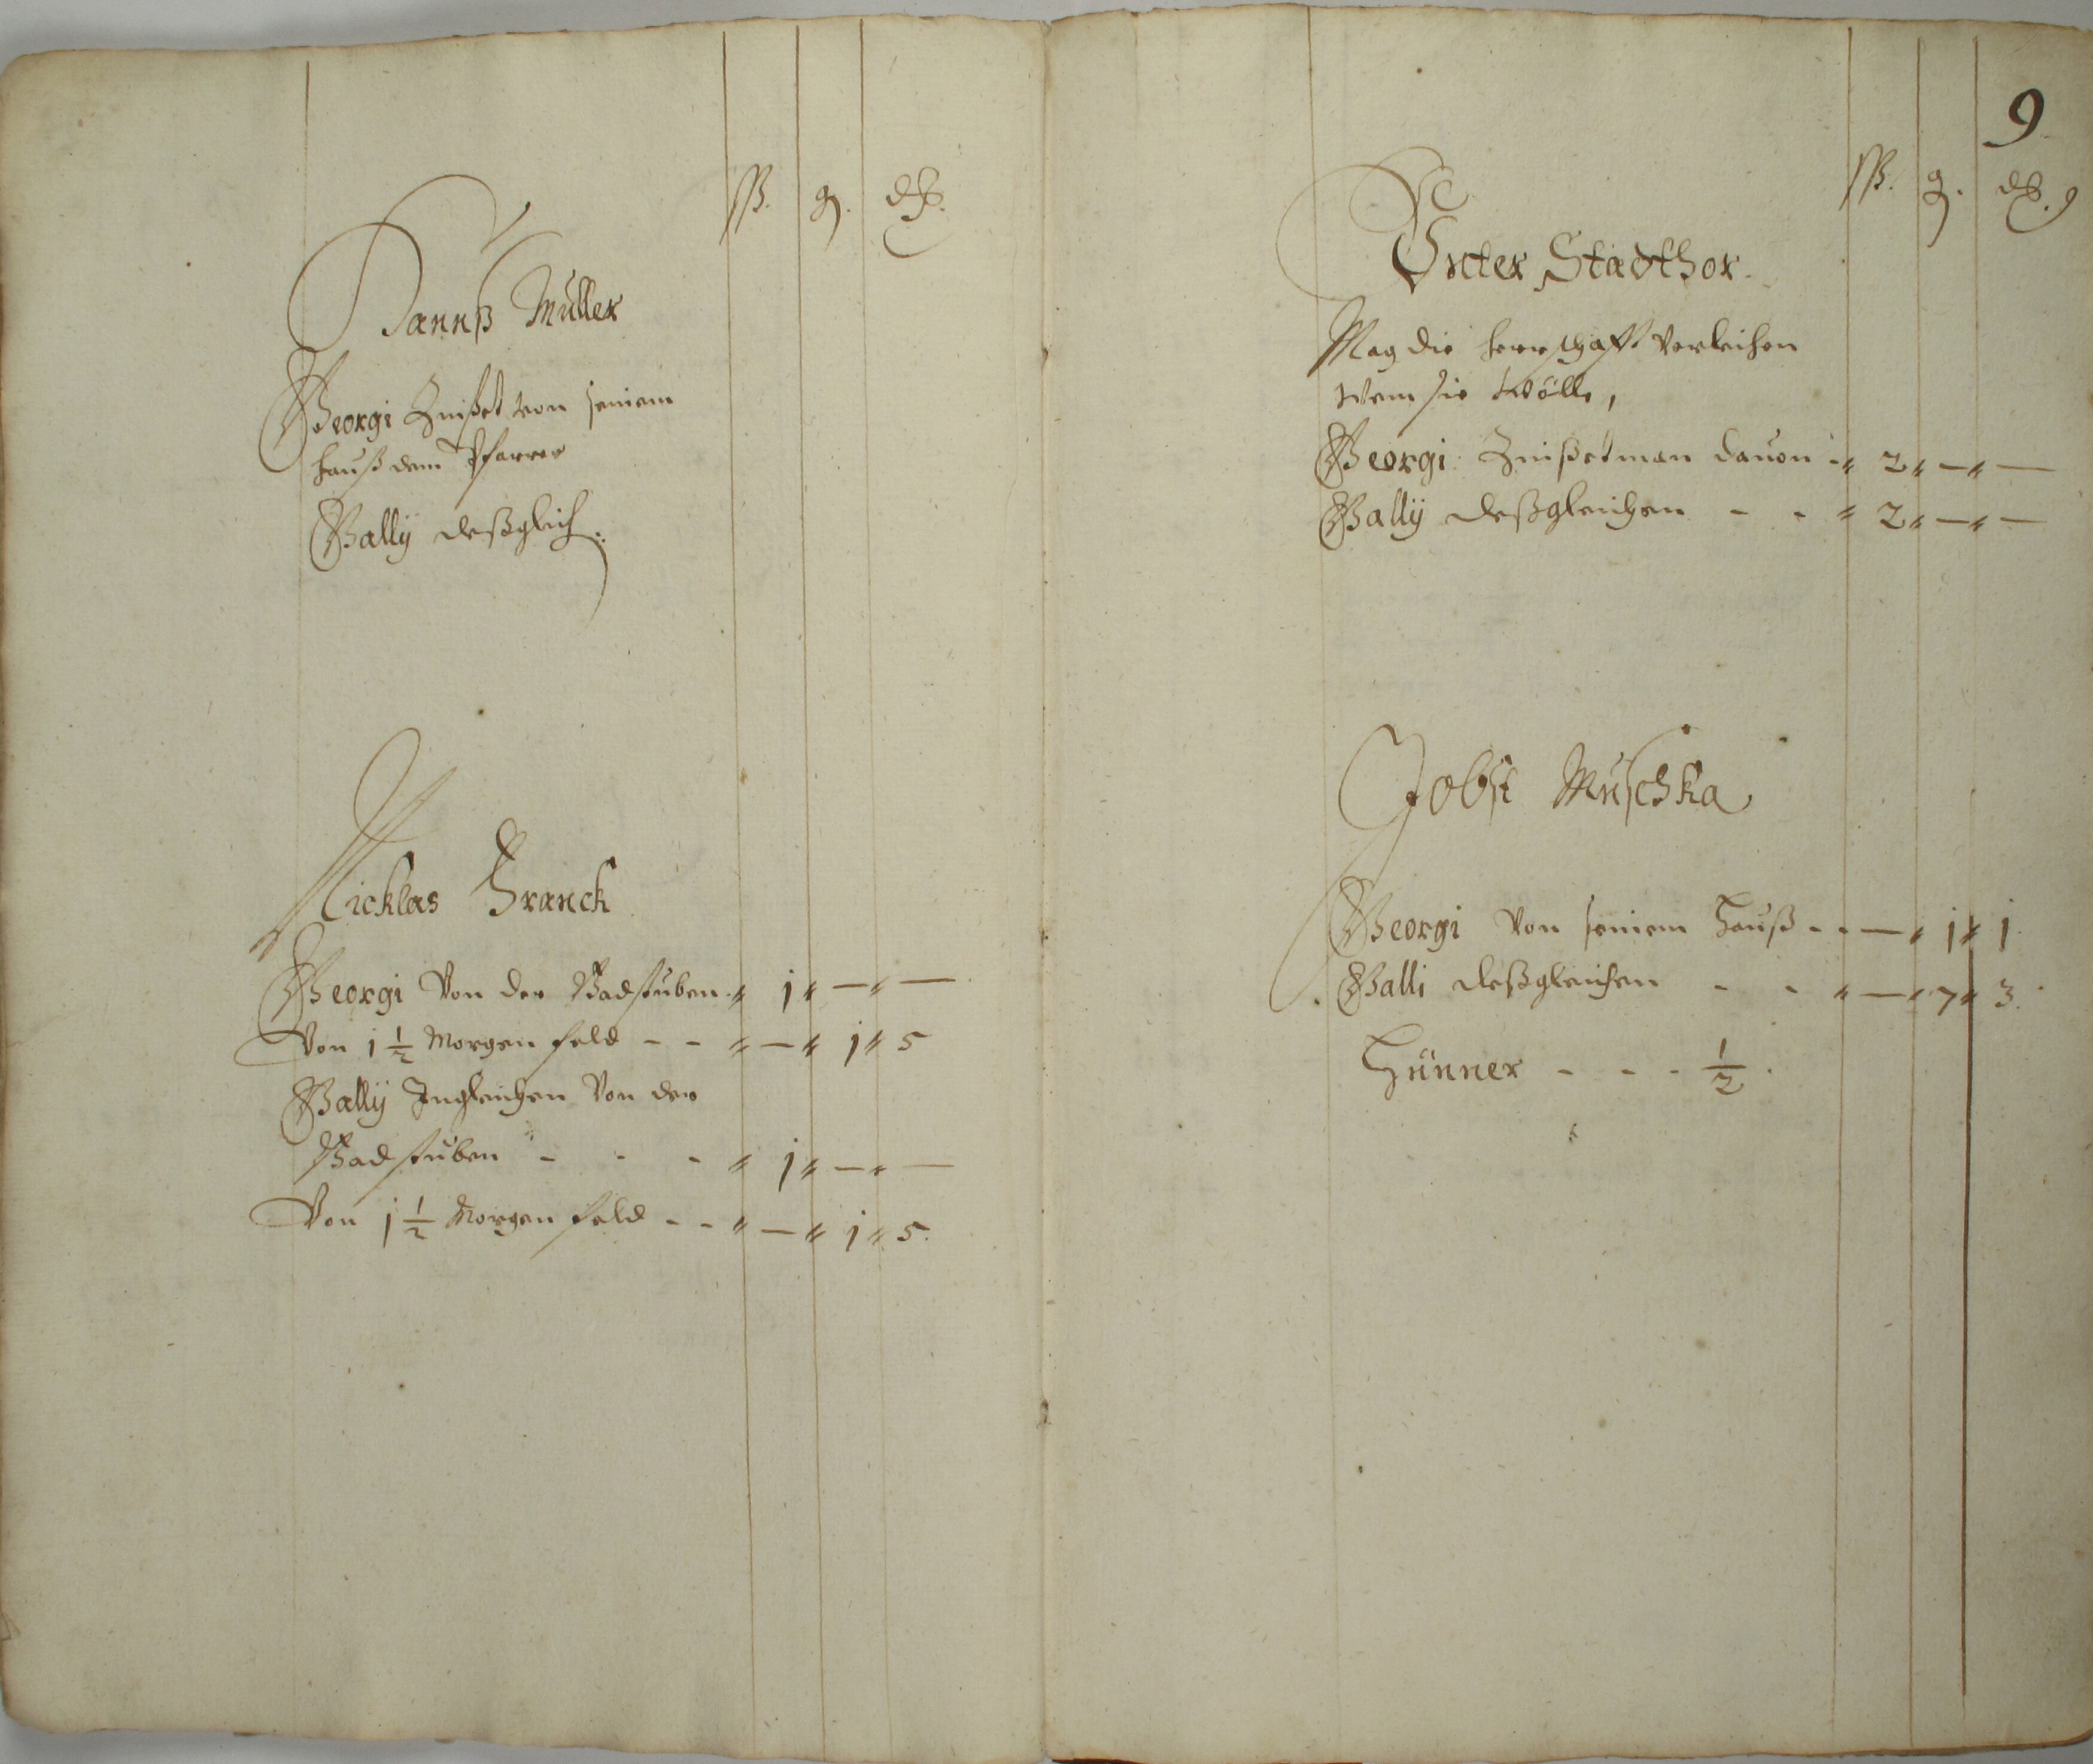 ßß. g. dß.
Hannß Müller
Georgi Zinßet von seinem
hauß dem Pfarrer
Gally deßgleich:
Nicklas Franck
Georgi Von der Badstuben „ 1 „ — „ —
Von 1 1/2 Morgen feld - - „ — „ 1 „ 5
Gally Ingleichen Von der
Badstuben - - - „ 1 „ — „ —
Von 1 1/2 Morgen feld - - „ — „ 1 „ 5.
9
ßß. g. dß.
Vnter Stadthor.
Mag die herrschafft verleihen
Wem sie wölle,
Georgi Zinßet man dauon - „ 2 „ — „ —
Gally deßgleichen - - „ 2 „ — „ —
Jobst Muschka
Georgi Von seinem Hauß - - — „ 1 „ 1
Galli deßgleichen - - „ — „ 7 „ 3.
Hünner - - - 1/2.